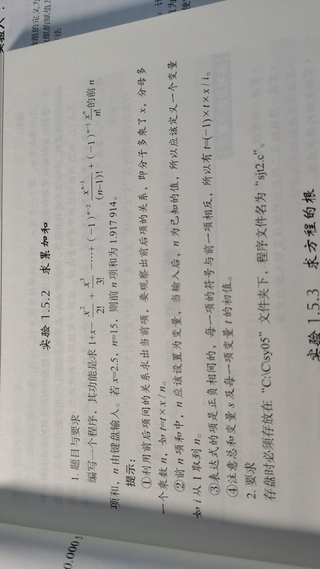 实验 1.5.2 求累加和
1. 题目与要求
编写一个程序，其功能是求 1+x−x²/2!+x³/3!−…+(−1)ⁿ⁻²xⁿ⁻¹/(n−1)!+(−1)ⁿ⁻¹xⁿ/n!的前 n
项和，n 由键盘输入。若 x=2.5，n=15，则前 n 项和为 1.917914。
提示：
①利用前后项间的关系求出当前项，要观察出前后项的关系，即分子多乘了 x，分母多
一个乘数 n，如 t=t×x/n。
②前 n 项和中，n 应该设置为变量，当输入后，n 为已知的值，所以应该定义一个变量
如 i 从 1 取到 n。
③表达式的项是正负相间的，每一项的符号与前一项相反，所以有 t=(−1)×t×x/i。
④注意总和变量 s 及每一项变量 t 的初值。
2. 要求
存盘时必须存放在“C:\C\sy05”文件夹下，程序文件名为“sjt2.c”。
实验 1.5.3 求方程的根